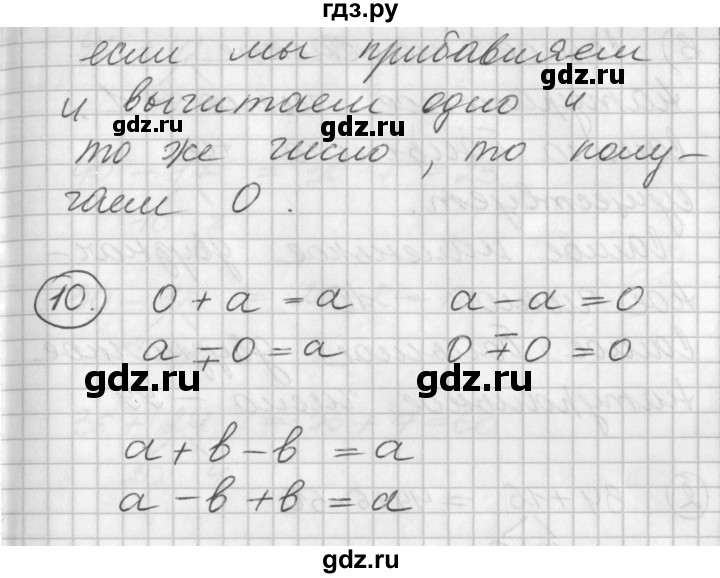 гдз.ру
если мы прибавляем
gdz.ru
и вычитаем одно и
gdz.ru gdz.ru
то же число, то полу-
чаем 0.
10. 0 + a = a a - a = 0
a ∓ 0 = a 0 ∓ 0 = 0
gdz.ru gdz.ru
a + b - b = a
a - b + b = a
gdz.ru gdz.ru